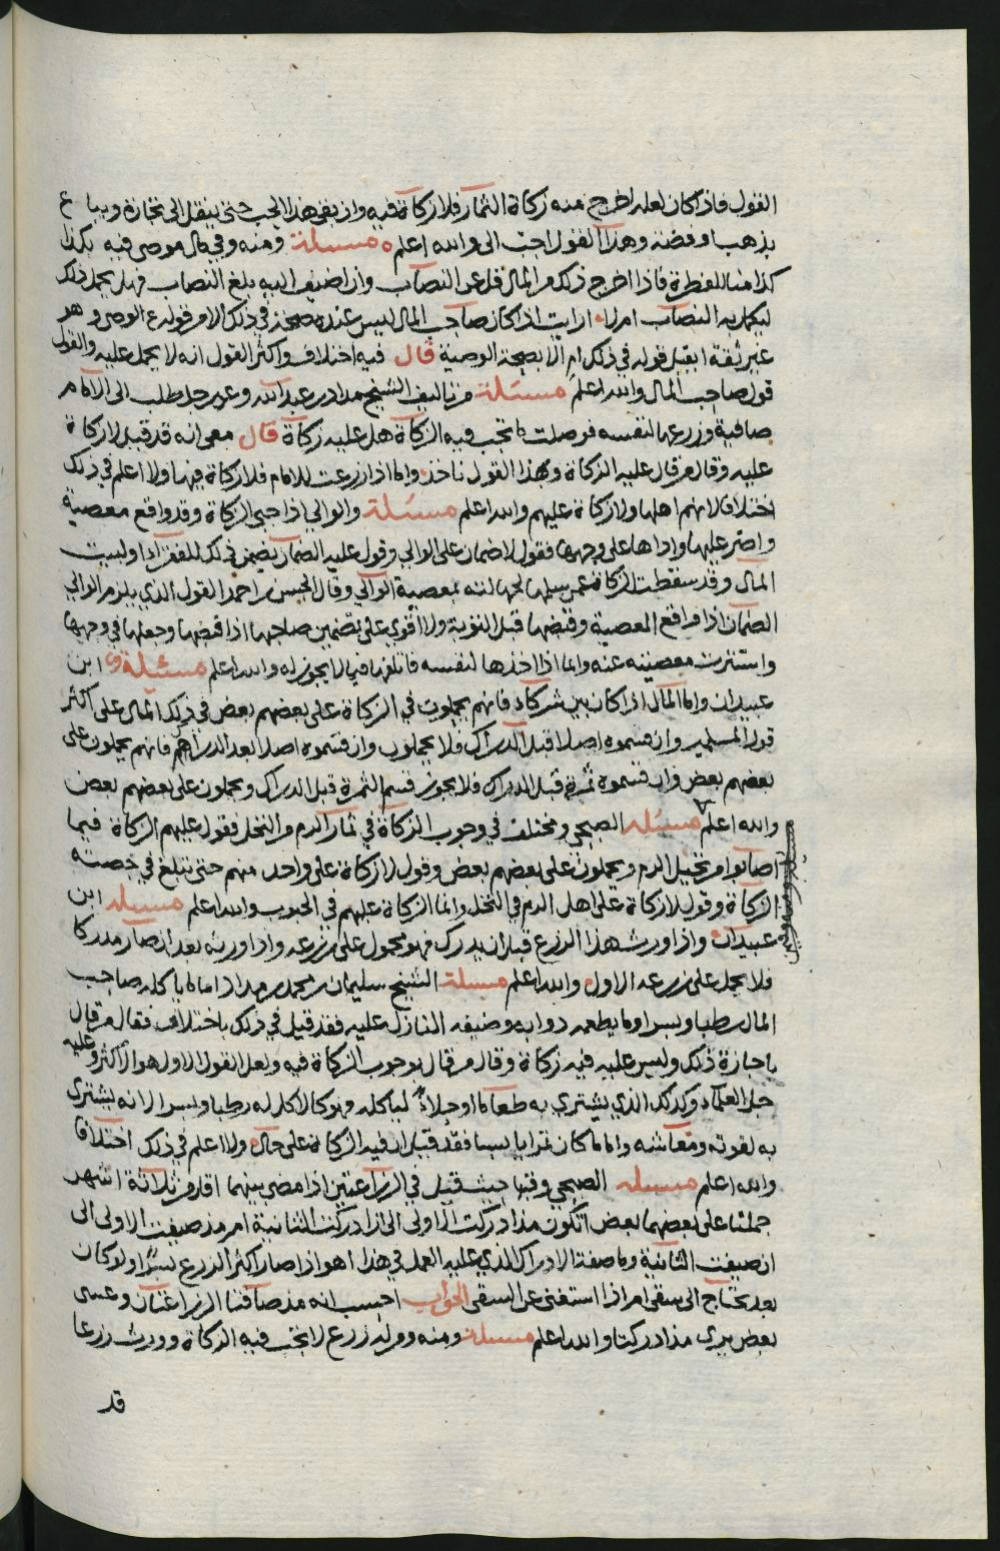 القول فاذا كان لعله اخرج منه زكاة الثمار فلا زكاة فيه وان بقى هذا الحب حتى ينقل الى تجارة ويباع
بذهب او فضة وهذا القول احب الى والله اعلم مسئلة ومنه وفي مال موصى فيه بكذا
كذا منا للفطرة فاذا اخرج ذلك من المال قل عن النصاب وان اضيف اليه بلغ النصاب فهل يحمل ذلك
ليكمل به النصاب ام لا ارايت اذا كان صاحب المال ليس عنده صحة في ذلك الا من قوله ع الوصى وهو
غير ثقة ايقبل قوله في ذلك ام الا بصحة الوصية قال فيه اختلاف واكثر القول انه لا يحمل عليه والقول
قول صاحب المال والله اعلم مسئلة من تاليف الشيخ مداد بن عبدالله وعن رجل طلب الى الامام
صافية وزرعها لنفسه فوصلت ما تجب فيه الزكاة هل عليه زكاة قال معى انه قد قيل لا زكاة
عليه وقال من قال عليه الزكاة وبهذا القول ناخذ واما اذا زرعت للامام فلا زكاة فيها ولا اعلم في ذلك
اختلافا لانهم اهلها ولا زكاة عليهم والله اعلم مسئلة والوالي اذا جبى الزكاة وقد واقع معصية
واصر عليها واداها على وجهها فقول لا ضمان على الوالي وقول عليه الضمان يضمن ذلك للفقراء او لبيت
المال وقد سقطت الزكاة عمن سلمها لجهالته بمعصية الوالي وقال الحسن بن احمد القول الذي يلزم الوالي
الضمان اذا واقع المعصية وقبضها قبل التوبة ولا اقوى على تضمين صاحبها اذا قبضها وجعلها في وجهها
واستترت معصيته عنه واما اذا اخذها لنفسه فاتلفها فيما لا يجوز له والله اعلم مسئلة ابن
عبيدان واما المال اذا كان بين شركاء فانهم يحملون في الزكاة على بعضهم بعض في ذلك المال على اكثر
قول المسلمين وان قسموه اصلا قبل الدراك فلا يحملون وان قسموه اصلا بعد الدراك فانهم يحملون على
بعضهم بعض وان قسموه ثمرة قبل الدراك فلا يجوز قسم الثمرة قبل الدراك ويحملون على بعضهم بعض
والله اعلم مسئلة الصبحى ومختلف في وجوب الزكاة في ثمار الرم من النخل فقول عليهم الزكاة فيما
اصابوا من نخيل الرم ويحملون على بعضهم بعض وقول لا زكاة على واحد منهم حتى تبلغ في حصته
الزكاة وقول لا زكاة على اهل الرم في النخل وانما الزكاة عليهم في الحبوب والله اعلم مسئلة ابن
عبيدان واذا ورث هذا الزرع قبل ان يدرك فهو محمول على زرعه واذا ورثه بعد ان صار مدركا
فلا يحمل على زرعه الاول والله اعلم مسئلة الشيخ سليمان بن محمد بن مداد اما ما ياكله صاحب
المال رطبا وبسرا وما يطعمه دوابه وضيفه النازل عليه فقد قيل في ذلك باختلاف فقال من قال
باجازة ذلك وليس عليه فيه زكاة وقال من قال بوجوب الزكاة فيه ولعل القول الاول هو الاكثر وعليه
جل العلماء وكذلك الذي يشترى به طعاما لياكله فهو كالاكل له رطبا وبسرا لانه يشترى
به لقوته ومعاشه واما ما كان تمرا يابسا فقد قيل ان فيه الزكاة على حال ولا اعلم في ذلك اختلافا
والله اعلم مسئلة الصبحي وفيما حيث قيل في الزراعتين اذا مضى بينهما اقل من ثلاثة اشهر
حملتا على بعضهما بعض اتكون مذ ادركت الاولى الى ان ادركت الثانية ام مذ صيفت الاولى الى
ان صيفت الثانية وما صفة الادراك الذي عليه العمل في هذا اهو اذا صار اكثر الزرع ولو كان
بعد يحتاج الى سقى ام اذا استغنى عن السقى الجواب احسب انه مذ صافتا الزراعتان وعسى
بعض يرى مذ ادركتا والله اعلم مسئلة ومنه ومن له زرع لا تجب فيه الزكاة وورث زرعا
قد